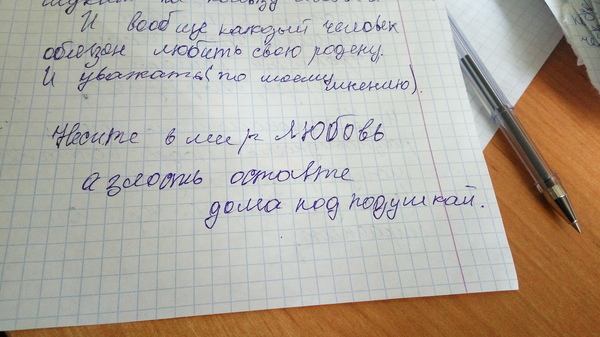 на пользу
И вообще каждый человек
обязон любить свою родену.
И уважать (по моему мнению).
Несите в мир ЛЮБОВЬ
а злость оставте
дома под подушкай.